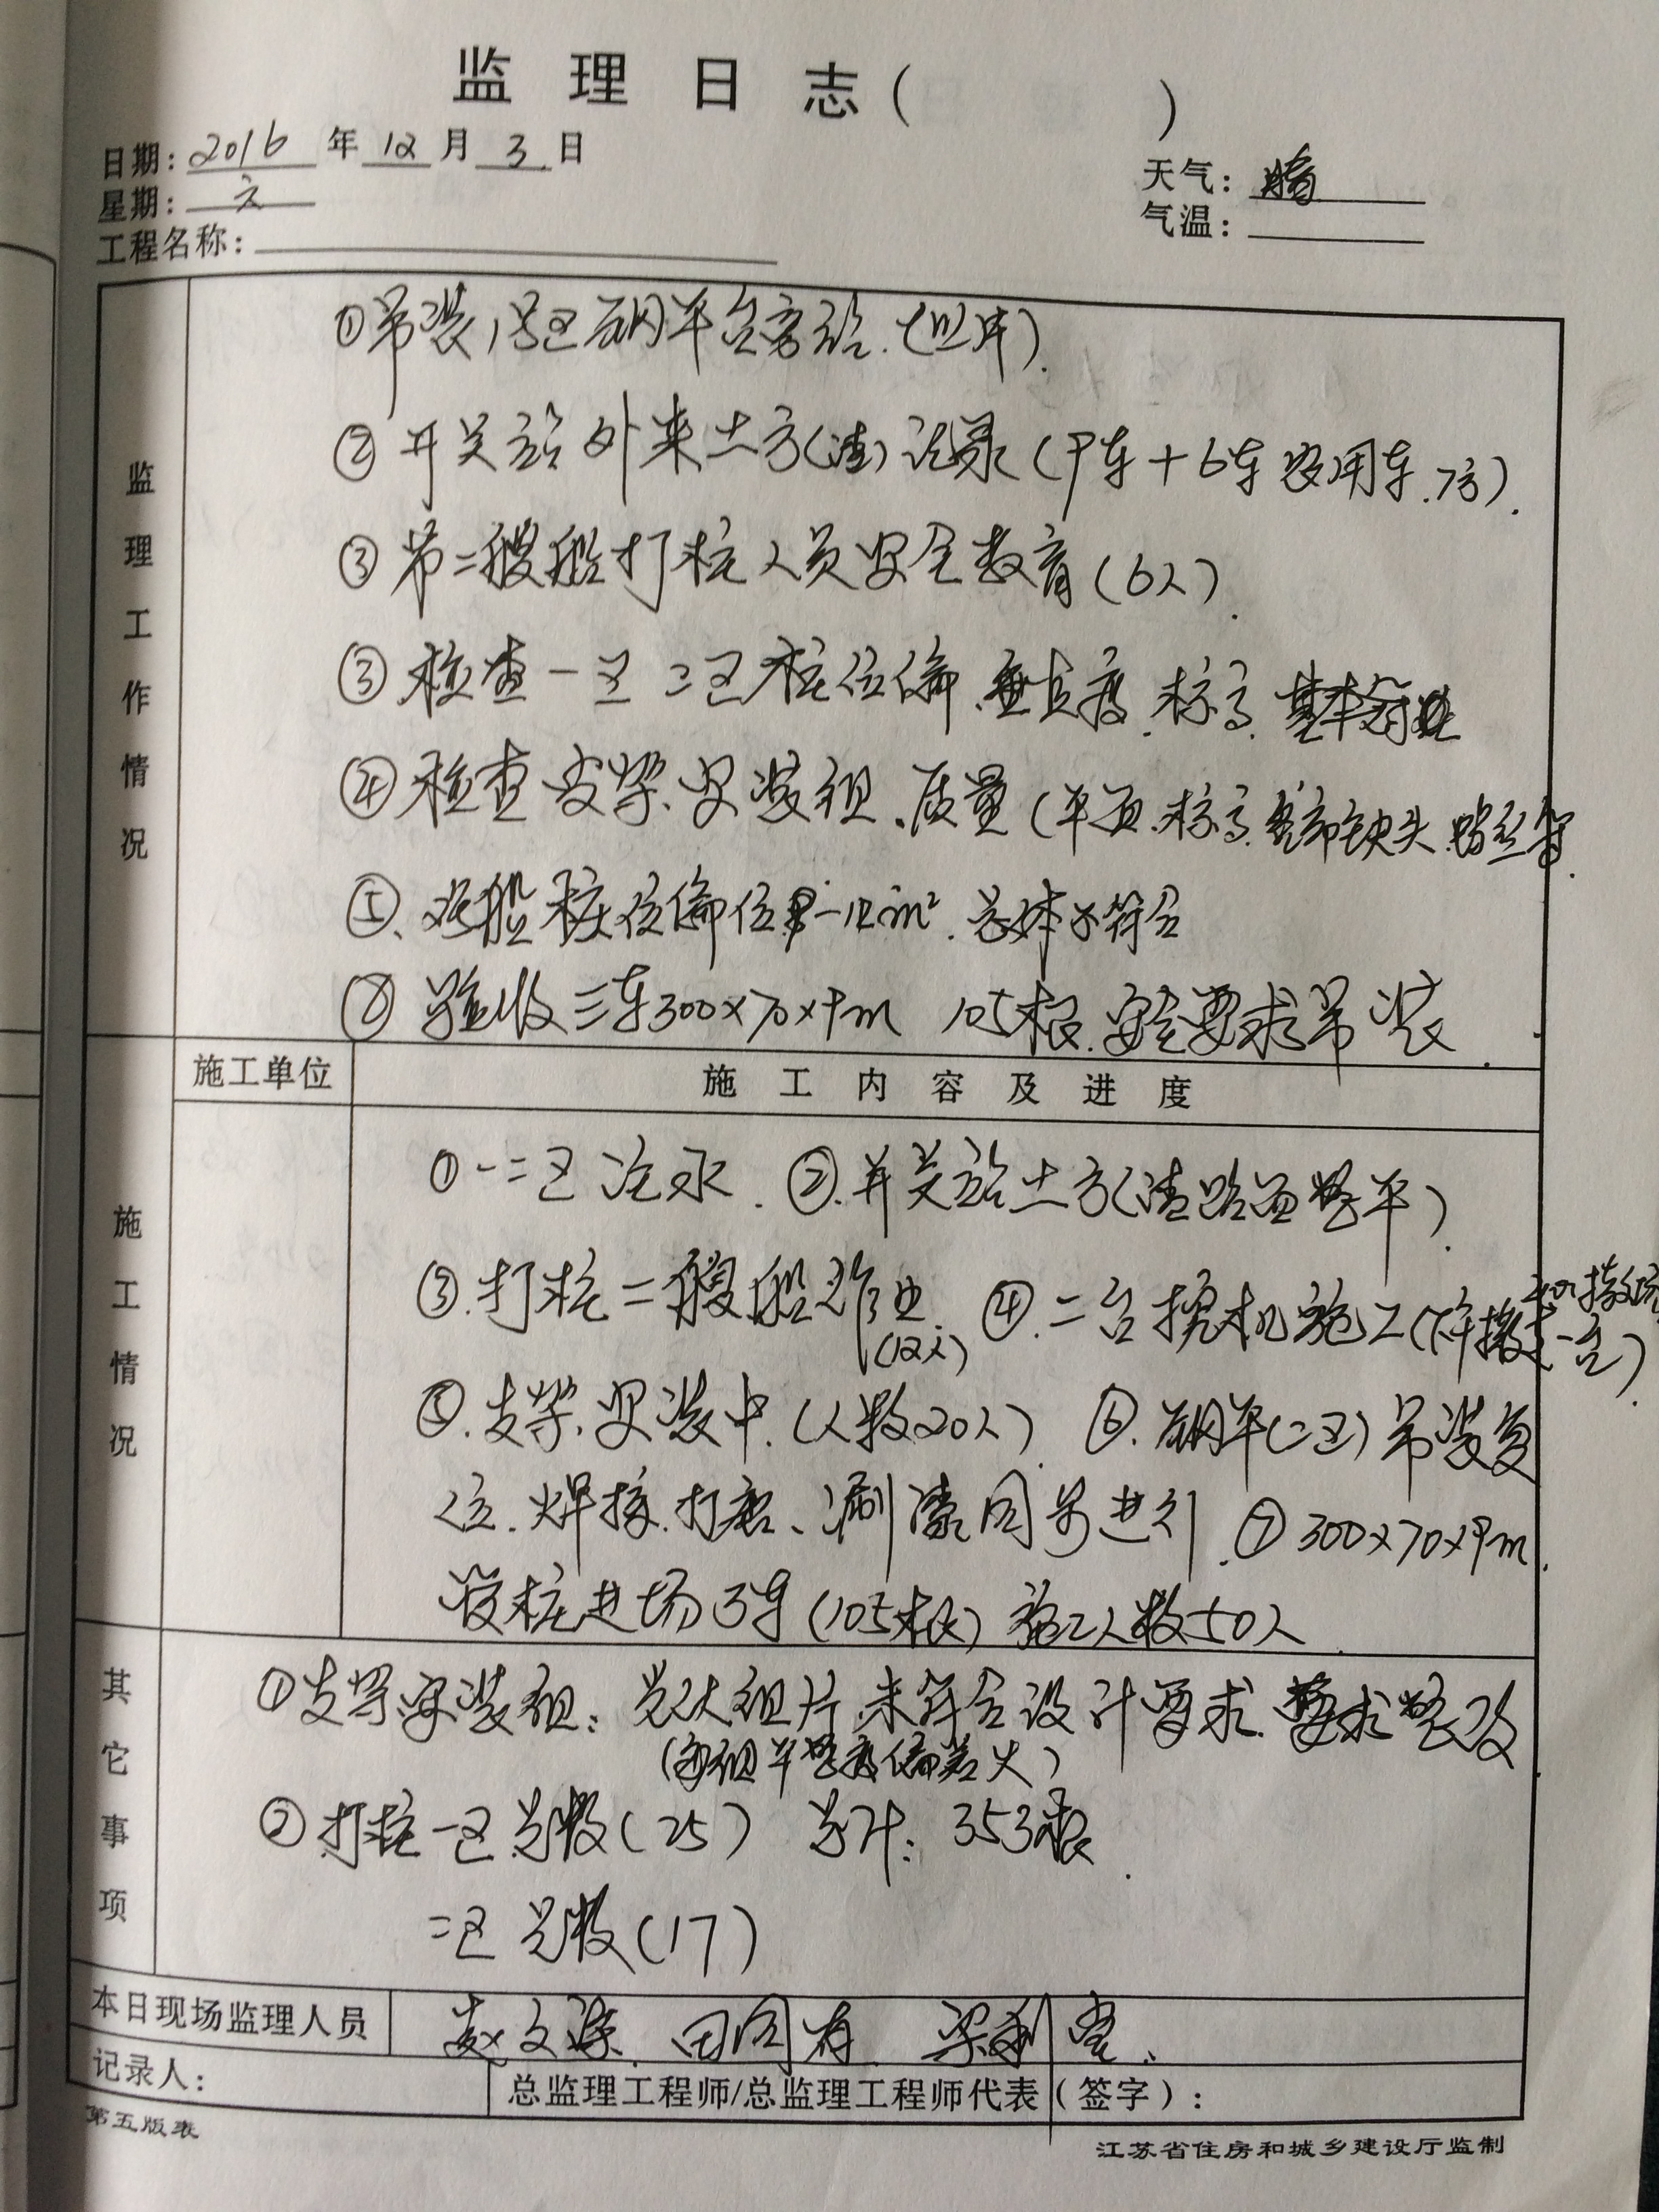 监理日志（ ）
日期：2016年12月3日
天气：晴
星期：六
气温：
工程名称：
监理工作情况
①吊装1号区钢平台
②开关站外来土方(渣)记录(9车+6车农用车.7方).
③第二艘船打桩人员安全教育(6人).
③检查一区二区桩位偏.垂直度.标高.基本符
④检查支架.安装组.质量(平面.标高
⑤.船桩位偏位 总体 符合
验收三车300×70×9m 105根.安全要求吊装.
施工单位 施工内容及进度
施工情况
①一二区 水.②.开关站土方(渣路面整平)
③.打桩二艘船作业.(12人)④.二台挖机施工(下午撤走一台)
⑤.支架.安装中.(人数20人)⑥.钢平(二区)吊装复
位.焊接.打磨、涮漆同步进行.⑦300×70×9m.
管桩进场3车(105根)施工人数50人.
其它事项
①支架安装组：组片.未符合设计要求.要求整改
(每组平整度偏差大)
②打桩一区总数(25) 总计：353根.
二区总数(17)
本日现场监理人员 赵文 田同有.梁利
记录人：
总监理工程师/总监理工程师代表（签字）：
第五版表
江苏省住房和城乡建设厅监制